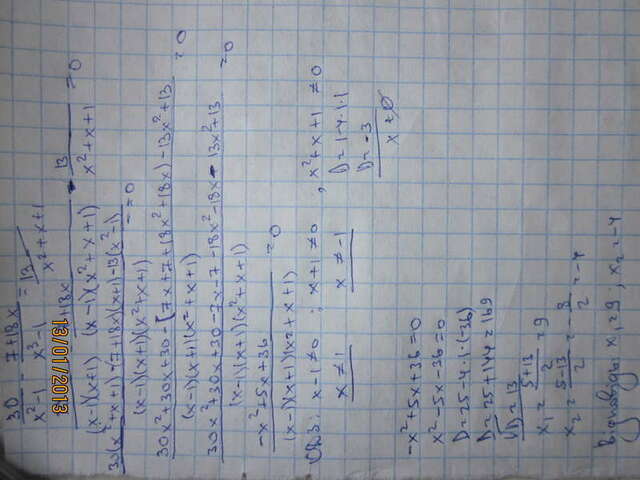 30/(x²-1) - (7+18x)/(x³-1) = 13/(x²+x+1)
30/((x-1)(x+1)) - (7+18x)/((x-1)(x²+x+1)) - 13/(x²+x+1) = 0
(30(x²+x+1)-(7+18x)(x+1)-13(x²-1))/((x-1)(x+1)(x²+x+1)) = 0
(30x²+30x+30-[7x+7+18x²+18x]-13x²+13)/((x-1)(x+1)(x²+x+1)) = 0
(30x²+30x+30-7x-7-18x²-18x-13x²+13)/((x-1)(x+1)(x²+x+1)) = 0
(-x²+5x+36)/((x-1)(x+1)(x²+x+1)) = 0
x-1≠0 ; x+1≠0 ; x²+x+1≠0
x≠1 x≠-1 D=1-4·1·1
D=-3
x≠∅
-x²+5x+36=0
x²-5x-36=0
D=25-4·1·(-36)
D=25+144=169
√D=13
x₁=(5+13)/2=9
x₂=(5-13)/2=-8/2=-4
Відповідь: x₁=9; x₂=-4
13/01/2013